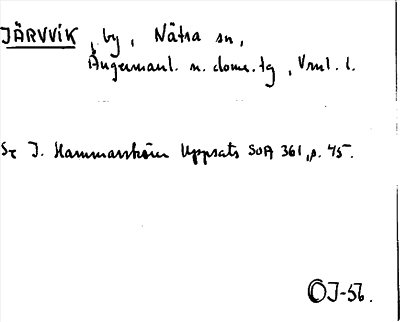 JÄRVVIK, by, Nätra sn,
Ångermanl. n. doms.tg, Vrnl. l.
Se J. Hammarström Uppsats SOA 361, s. 45.
ÖJ-56.